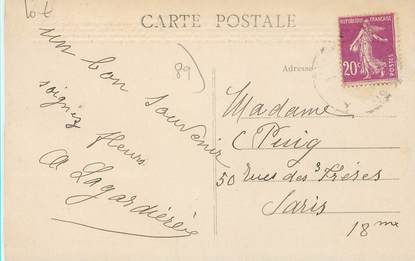 Lot
CARTE POSTALE
un bon souvenir
89
soignez fleurs
A Lagardiérère
Adresse
RÉPUBLIQUE FRANÇAISE
20c
POSTES
Madame
C Puig
50 rues des 3 Frères
Paris
18me